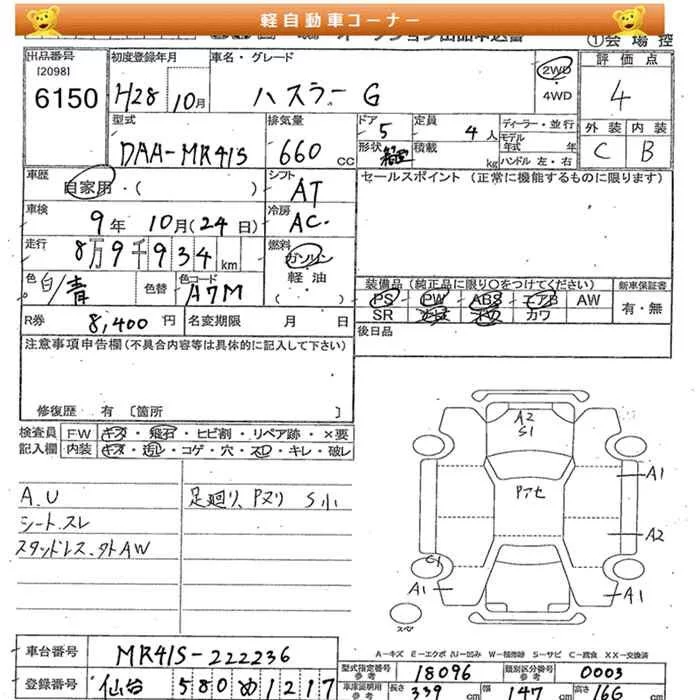 軽自動車コーナー
オークション出品申込書 ①会場控
出品番号 [2098] 6150
初度登録年月 H28 10月
車名・グレード ハスラー G
2WD 4WD
評価点 4
外装 C 内装 B
型式 DAA-MR41S
排気量 660 CC
ドア 5 形状 箱型
定員 4人 積載 kg
ディーラー・並行 モデル年式 年式 ハンドル 左・右
車歴 自家用・( )
シフト AT
セールスポイント (正常に機能するものに限ります)
車検 9年 10月(24日)
冷房 AC.
走行 8万9千934 km
燃料 ガソリン 軽油 ( )
色 白/青 色替 色コード A7M
装備品 (純正品に限り○をつけてください) 新車保証書
PS PW ABS エアB AW 有・無
SR カワ
R券 8,400円 名変期限 月 日
後日品
注意事項申告欄 (不具合内容等は具体的に記入して下さい)
修復歴 有 〔箇所 〕
検査員 記入欄
FW キズ・飛石・ヒビ割・リペア跡・×要
内装 キズ・汚レ・コゲ・穴・スレ・キレ・破レ
A.U
シート.スレ
スタッドレス.外AW
足廻り、Pヌリ S小
A2
S1
Pアセ
A1
A2
C1
A1
A1
スペア
A-キズ E-エクボ /U-凹み W-補修跡 S-サビ C-腐食 XX-交換済
車台番号 MR41S-222236
登録番号 仙台 580 め 1217
型式指定番号 参考 18096 類別区分番号 参考 0003
車庫証明用 参考 長さ 339 cm 幅 147 cm 高さ 166 cm